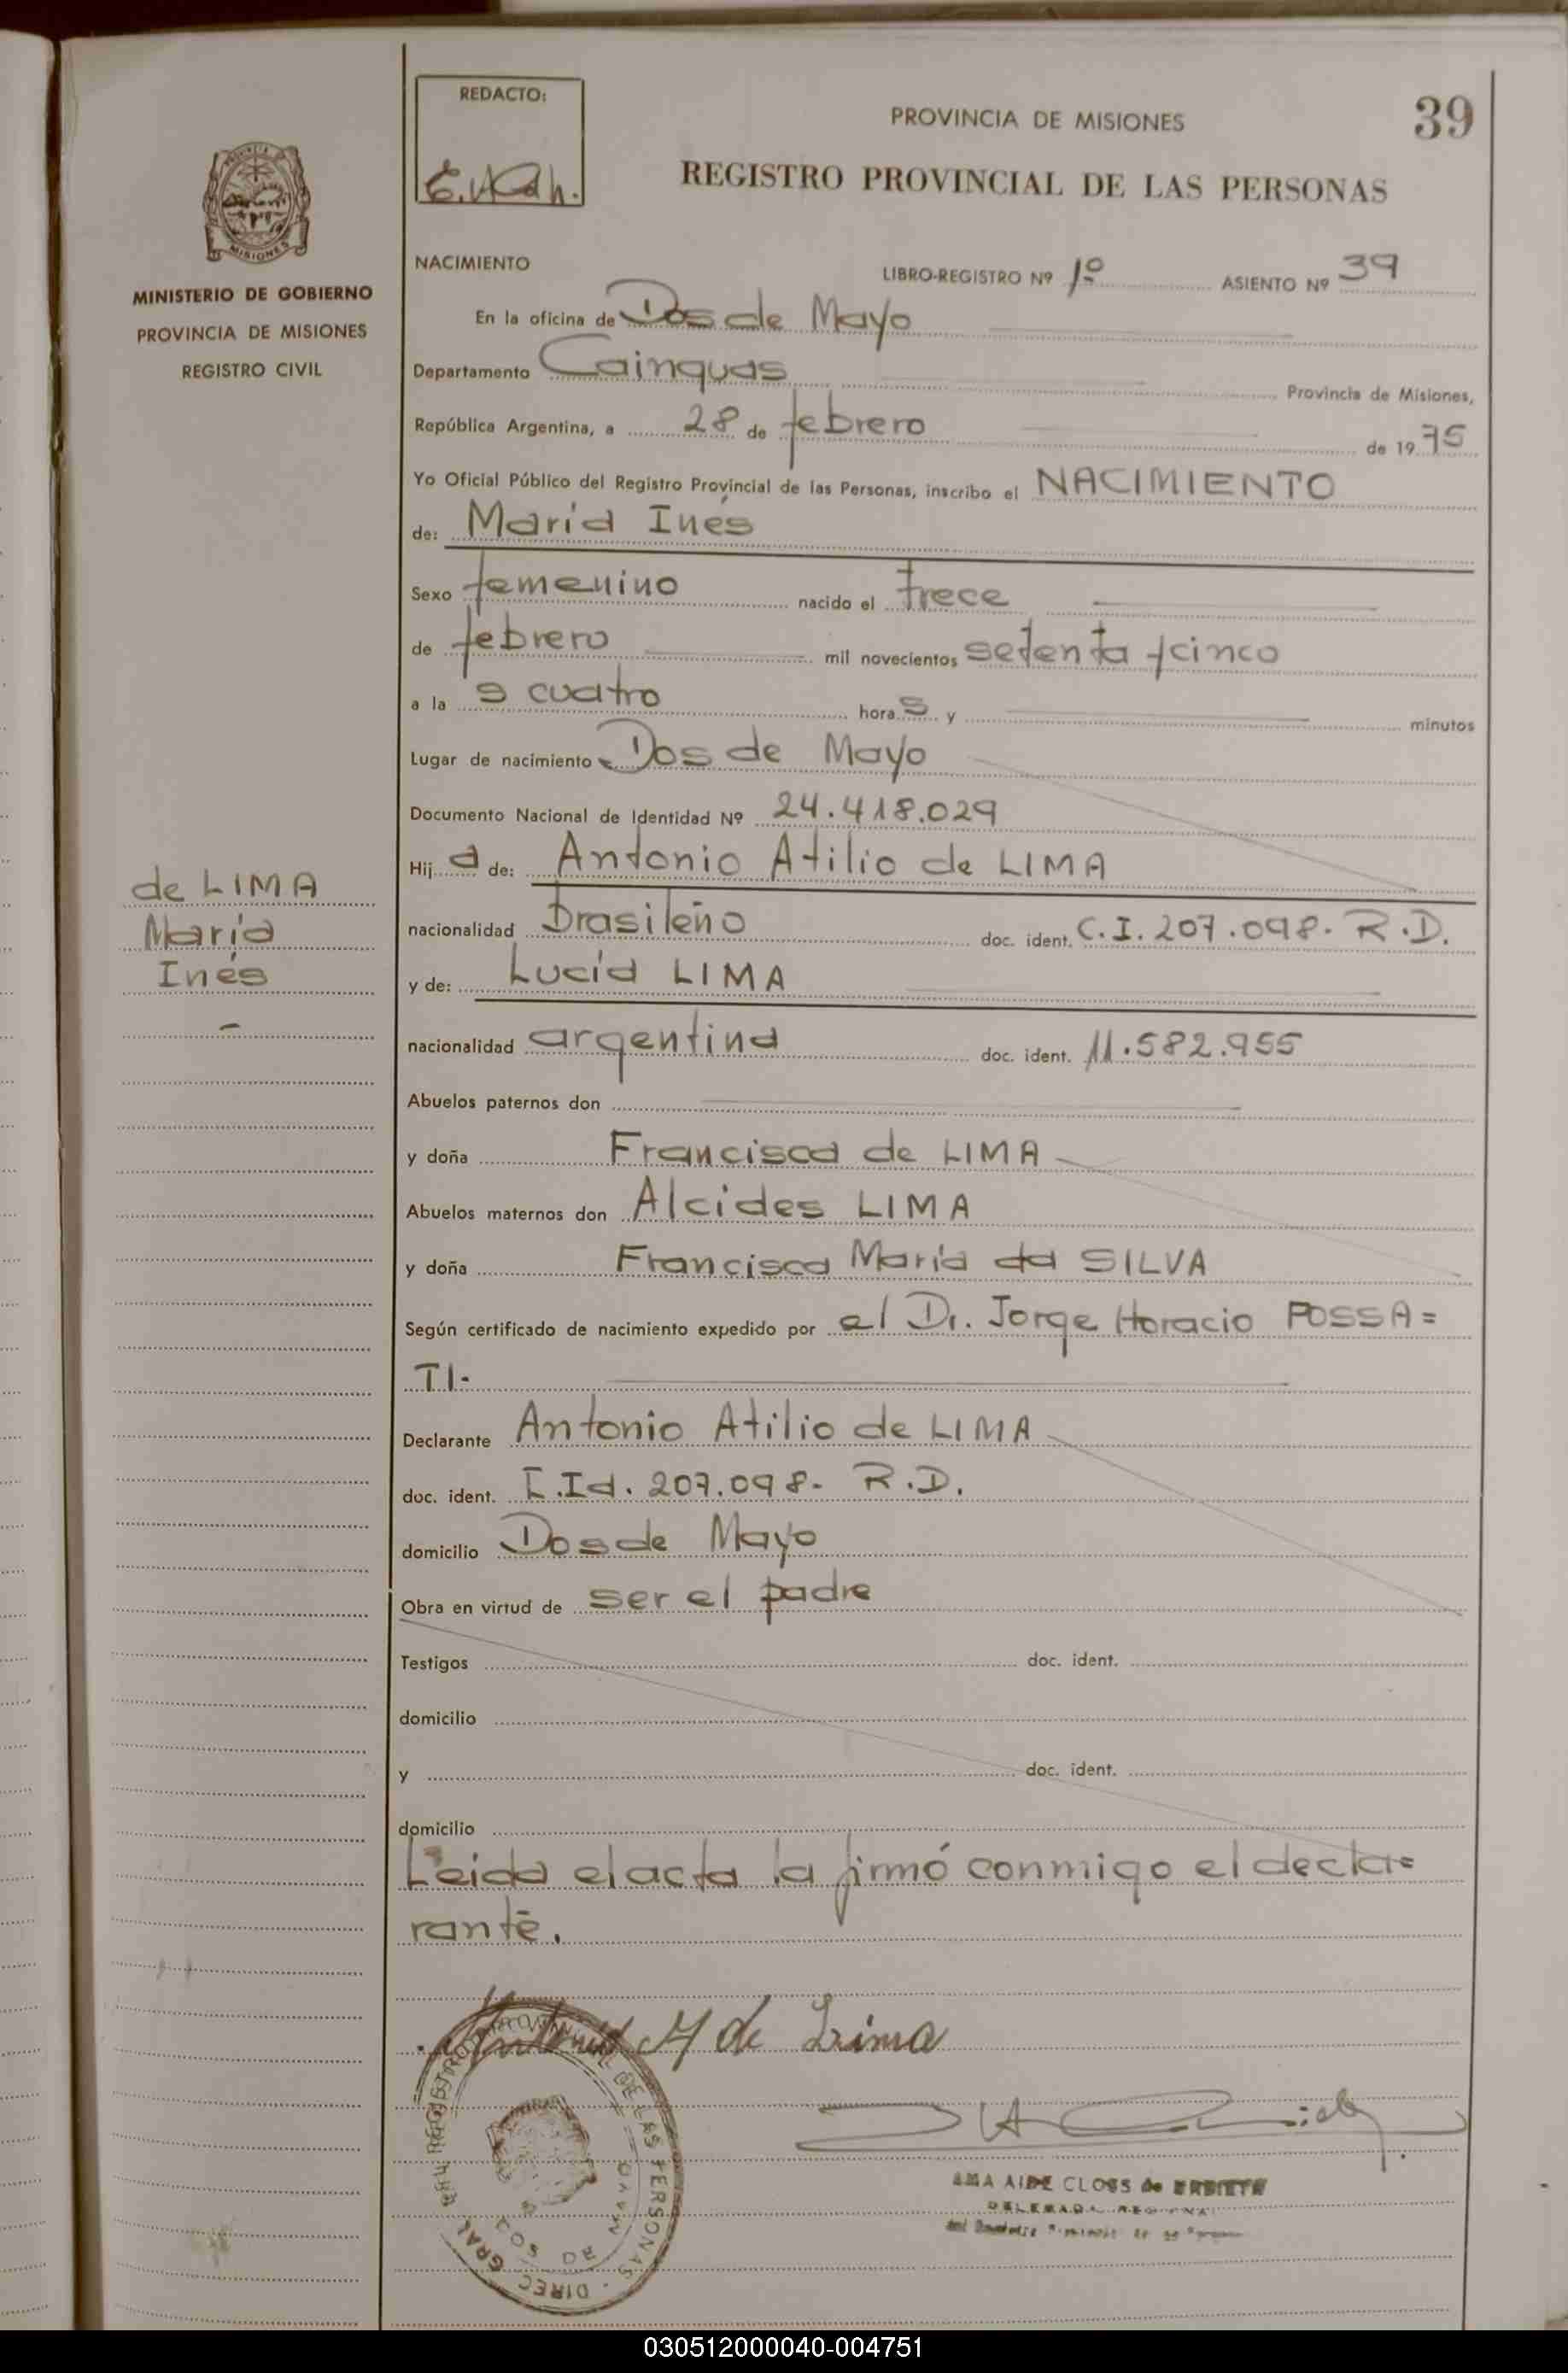 39
REDACTO:
PROVINCIA DE MISIONES
REGISTRO PROVINCIAL DE LAS PERSONAS
MISIONES
MINISTERIO DE GOBIERNO
PROVINCIA DE MISIONES
REGISTRO CIVIL
NACIMIENTO LIBRO-REGISTRO Nº 1º ASIENTO Nº 39
En la oficina de Dos de Mayo
Departamento Cainguas Provincia de Misiones,
República Argentina, a 28 de febrero de 1975
Yo Oficial Público del Registro Provincial de las Personas, inscribo el NACIMIENTO
de: María Inés
Sexo femenino nacido el trece
de febrero mil novecientos setenta y cinco
a la s cuatro hora s y minutos
Lugar de nacimiento Dos de Mayo
Documento Nacional de Identidad Nº 24.418.029
Hij a de: Antonio Atilio de LIMA
de LIMA
María
Inés
nacionalidad brasileño doc. ident. C.I. 207.098. R.D.
y de: Lucía LIMA
nacionalidad argentina doc. ident. 11.582.955
Abuelos paternos don
y doña Francisca de LIMA
Abuelos maternos don Alcides LIMA
y doña Francisca María da SILVA
Según certificado de nacimiento expedido por el Dr. Jorge Horacio POSSA=
TI.
Declarante Antonio Atilio de LIMA
doc. ident. C.Id. 207.098. R.D.
domicilio Dos de Mayo
Obra en virtud de ser el padre
Testigos doc. ident.
domicilio
y doc. ident.
domicilio
Leida el acta la firmó conmigo el decla=
rante.
Antonio A de Lima
AIDE CLOSS de
DIREC. GRAL. REGISTRO PROVINCIAL DE LAS PERSONAS
030512000040-004751